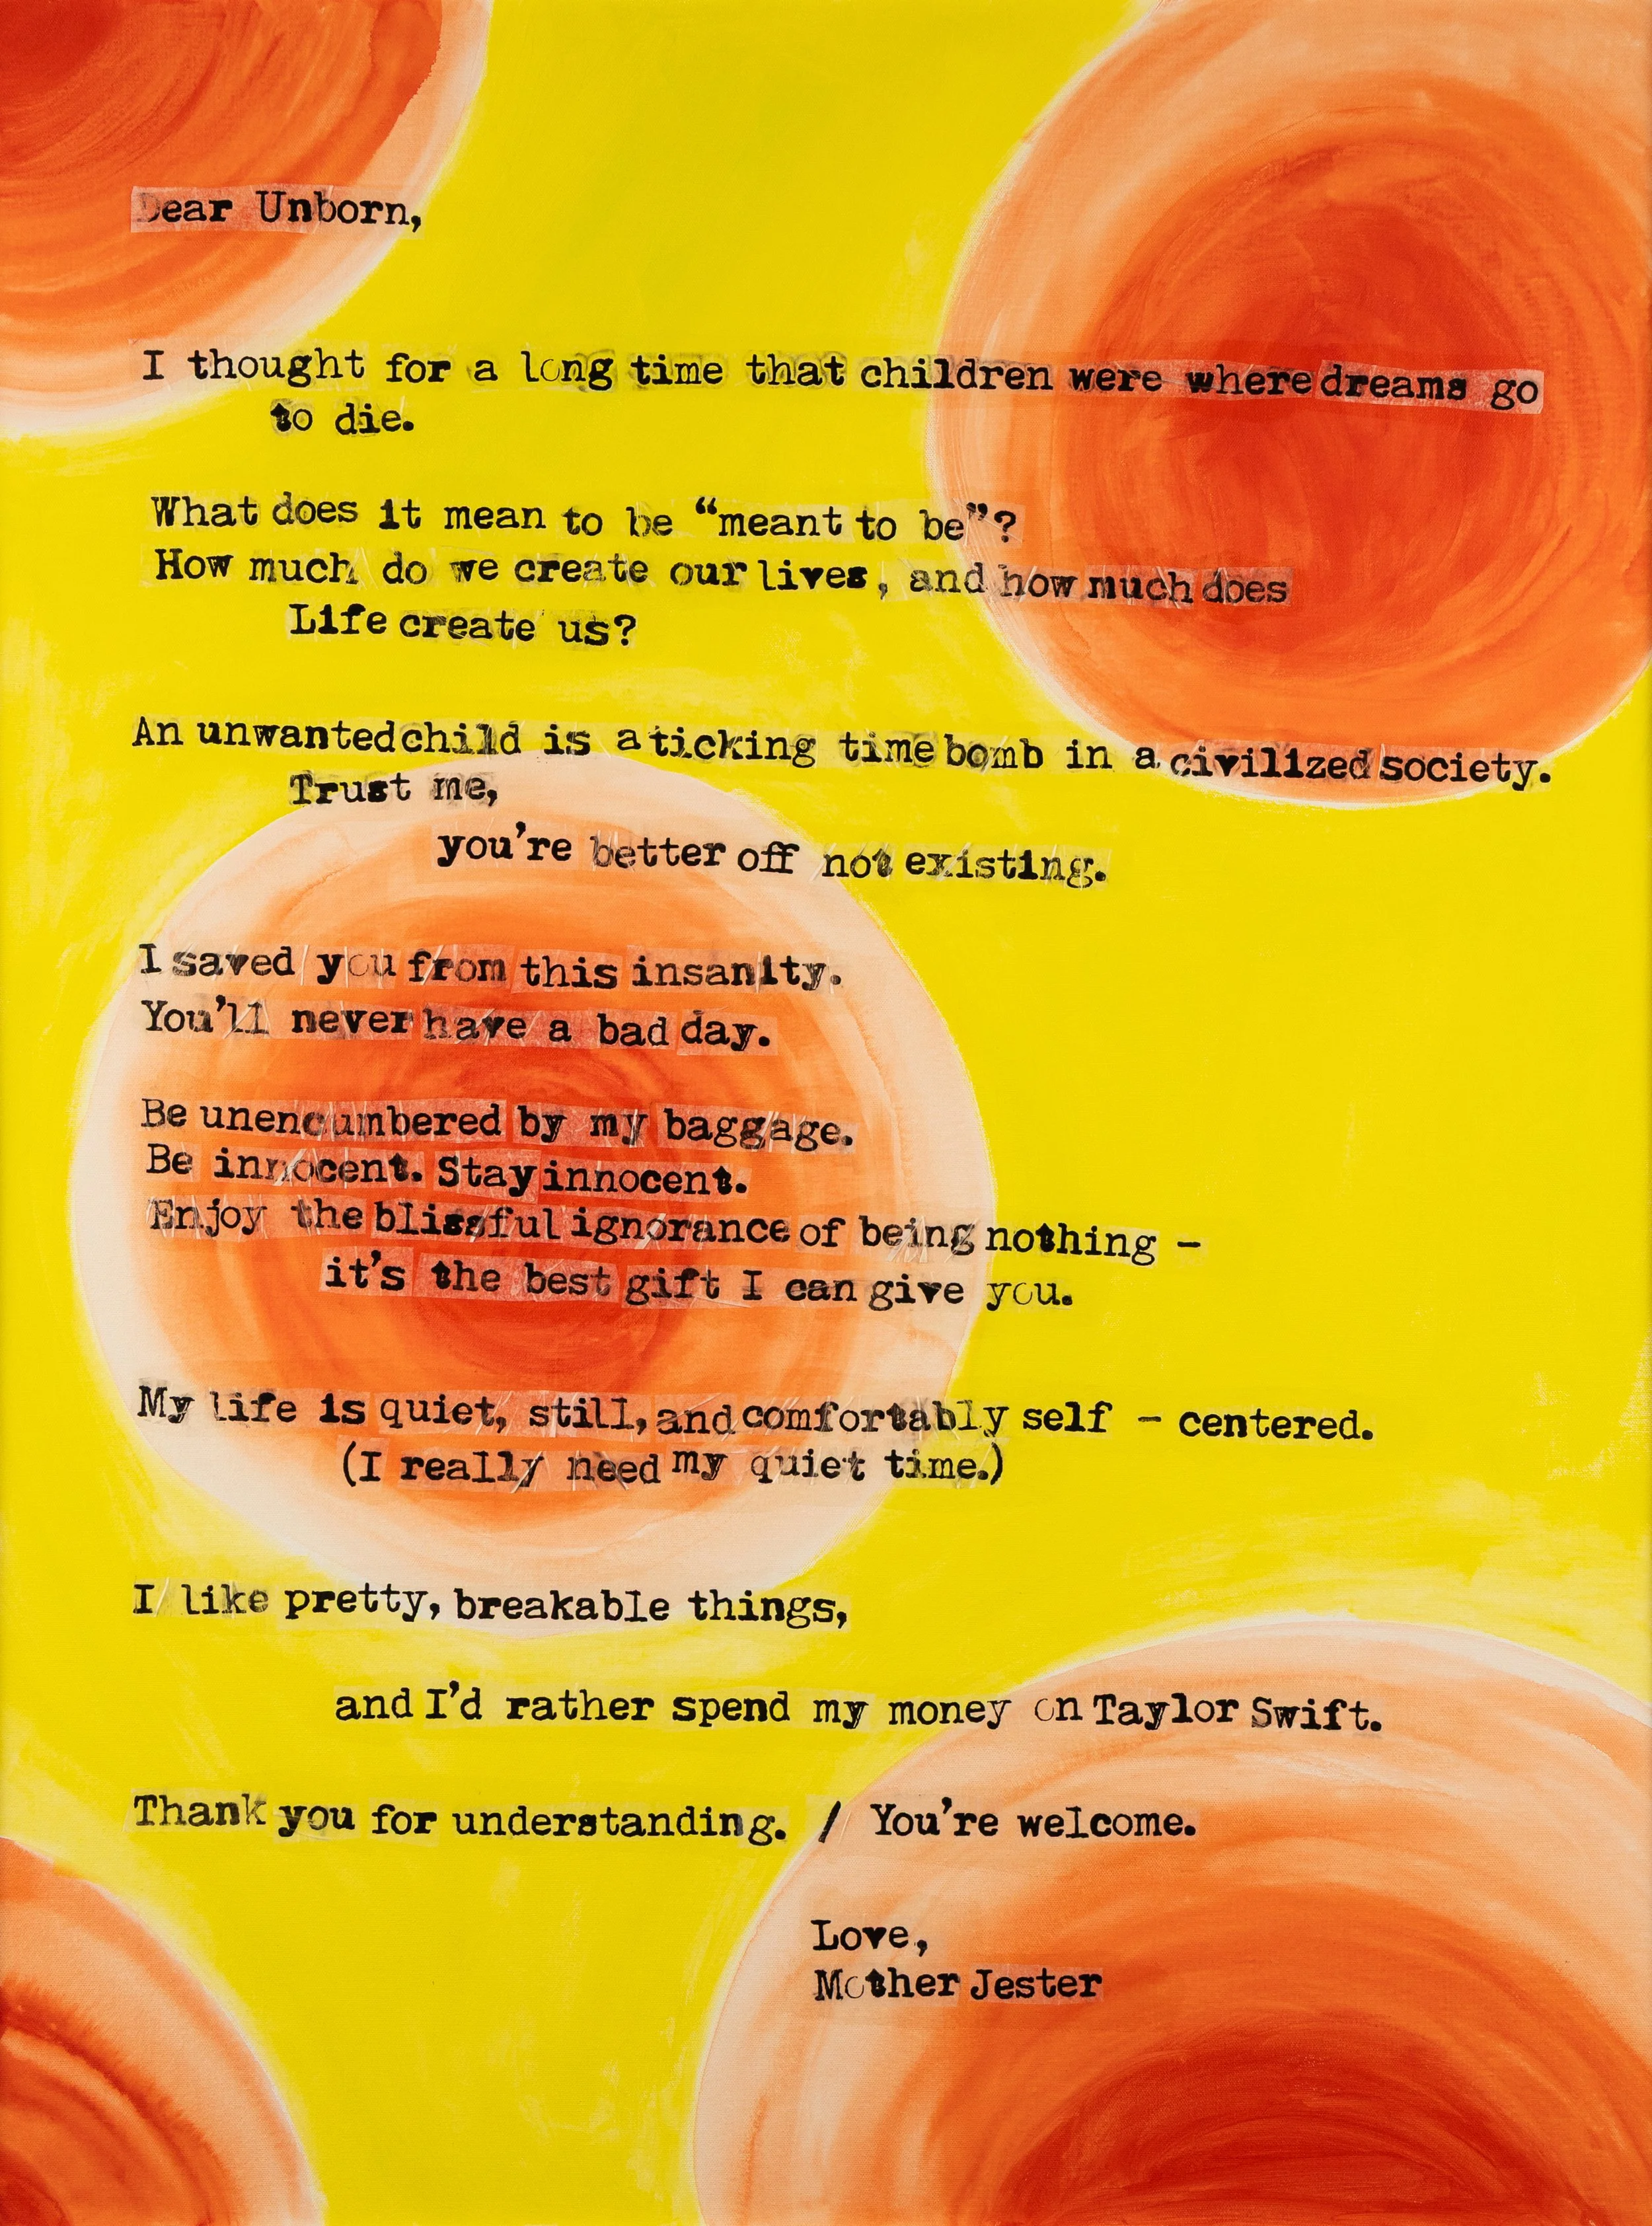 Dear Unborn,
I thought for a long time that children were where dreams go
to die.
What does it mean to be “meant to be”?
How much do we create our lives, and how much does
Life create us?
An unwanted child is a ticking time bomb in a civilized society.
Trust me,
you’re better off not existing.
I saved you from this insanity.
You’ll never have a bad day.
Be unencumbered by my baggage.
Be innocent. Stay innocent.
Enjoy the blissful ignorance of being nothing –
it’s the best gift I can give you.
My life is quiet, still, and comfortably self – centered.
(I really need my quiet time.)
I like pretty, breakable things,
and I’d rather spend my money on Taylor Swift.
Thank you for understanding. / You’re welcome.
Love,
Mother Jester